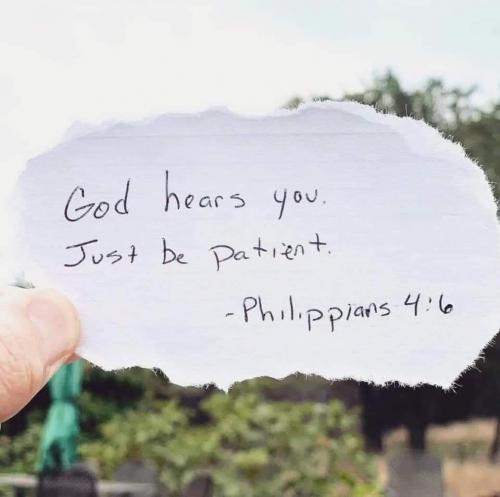 God hears you.
Just be patient.
-Philippians 4:6